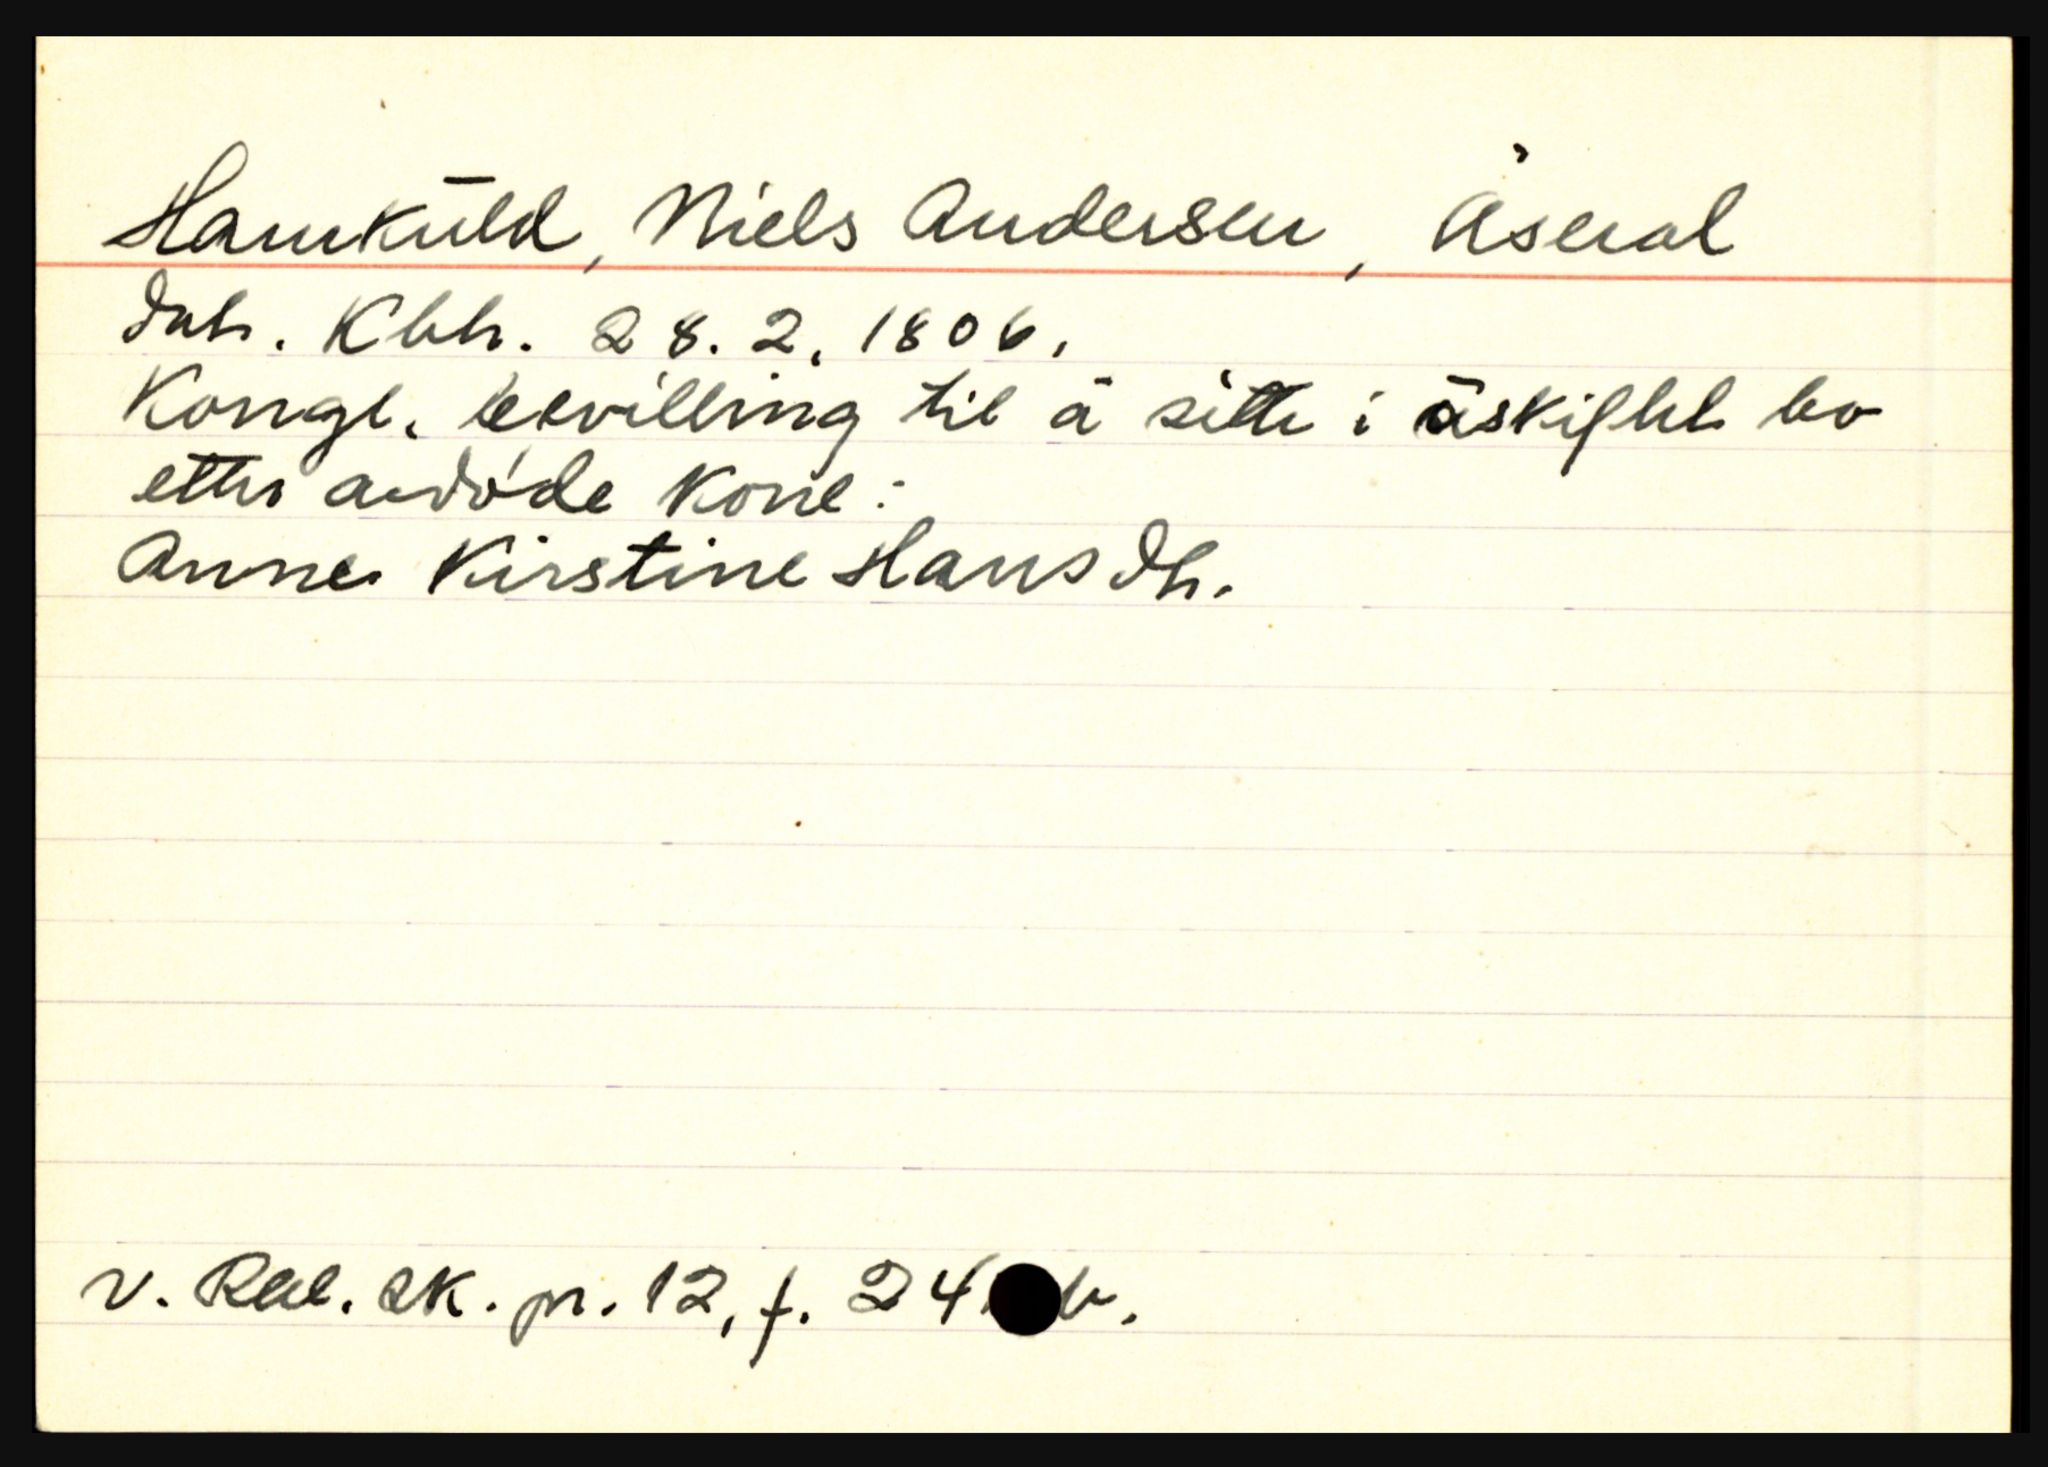 Hamkuld, Niels Andersen, Åseral
dat. Kbh. 28. 2. 1806.
Kongl. bevilling til å sitte i uskiftet bo
etter avdøde kone:
Anne Kirstine Hansdt.
v. Råb. sk. pr. 12, f. 24 b.